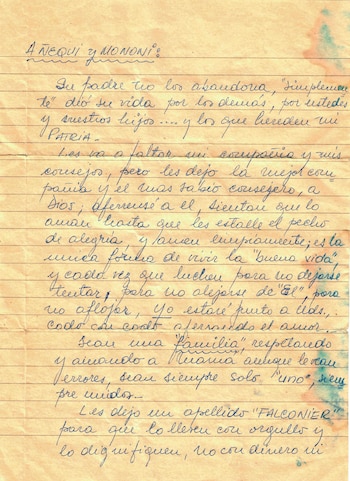 A ÑEQUI y MONONI:
Su padre no los abandona, "simplemen
te" dió su vida por los demás, por ustedes
y vuestros hijos .... y los que hereden mi
PATRIA.
Les va a faltar mi compañia y mis
consejos, pero les dejo la mejor com
pañia y el mas sabio consejero, a
Dios, aferrense a el, sientan que lo
aman hasta que les estalle el pecho
de alegria, y amen limpiamente; es la
unica forma de vivir la "buena vida"
y cada vez que luchen para no dejarse
tentar, para no alejarse de "El", para
no aflojar, yo estare junto a Uds.,
codo con codo aferrando el amor.
Sean una "familia", respetando
y amando a mama aunque le vean
errores, sean siempre solo "uno", siem
pre unidos..
Les dejo un apellido "FALCONIER"
para que lo lleven con orgullo y
lo dignifiquen, no con dinero ni